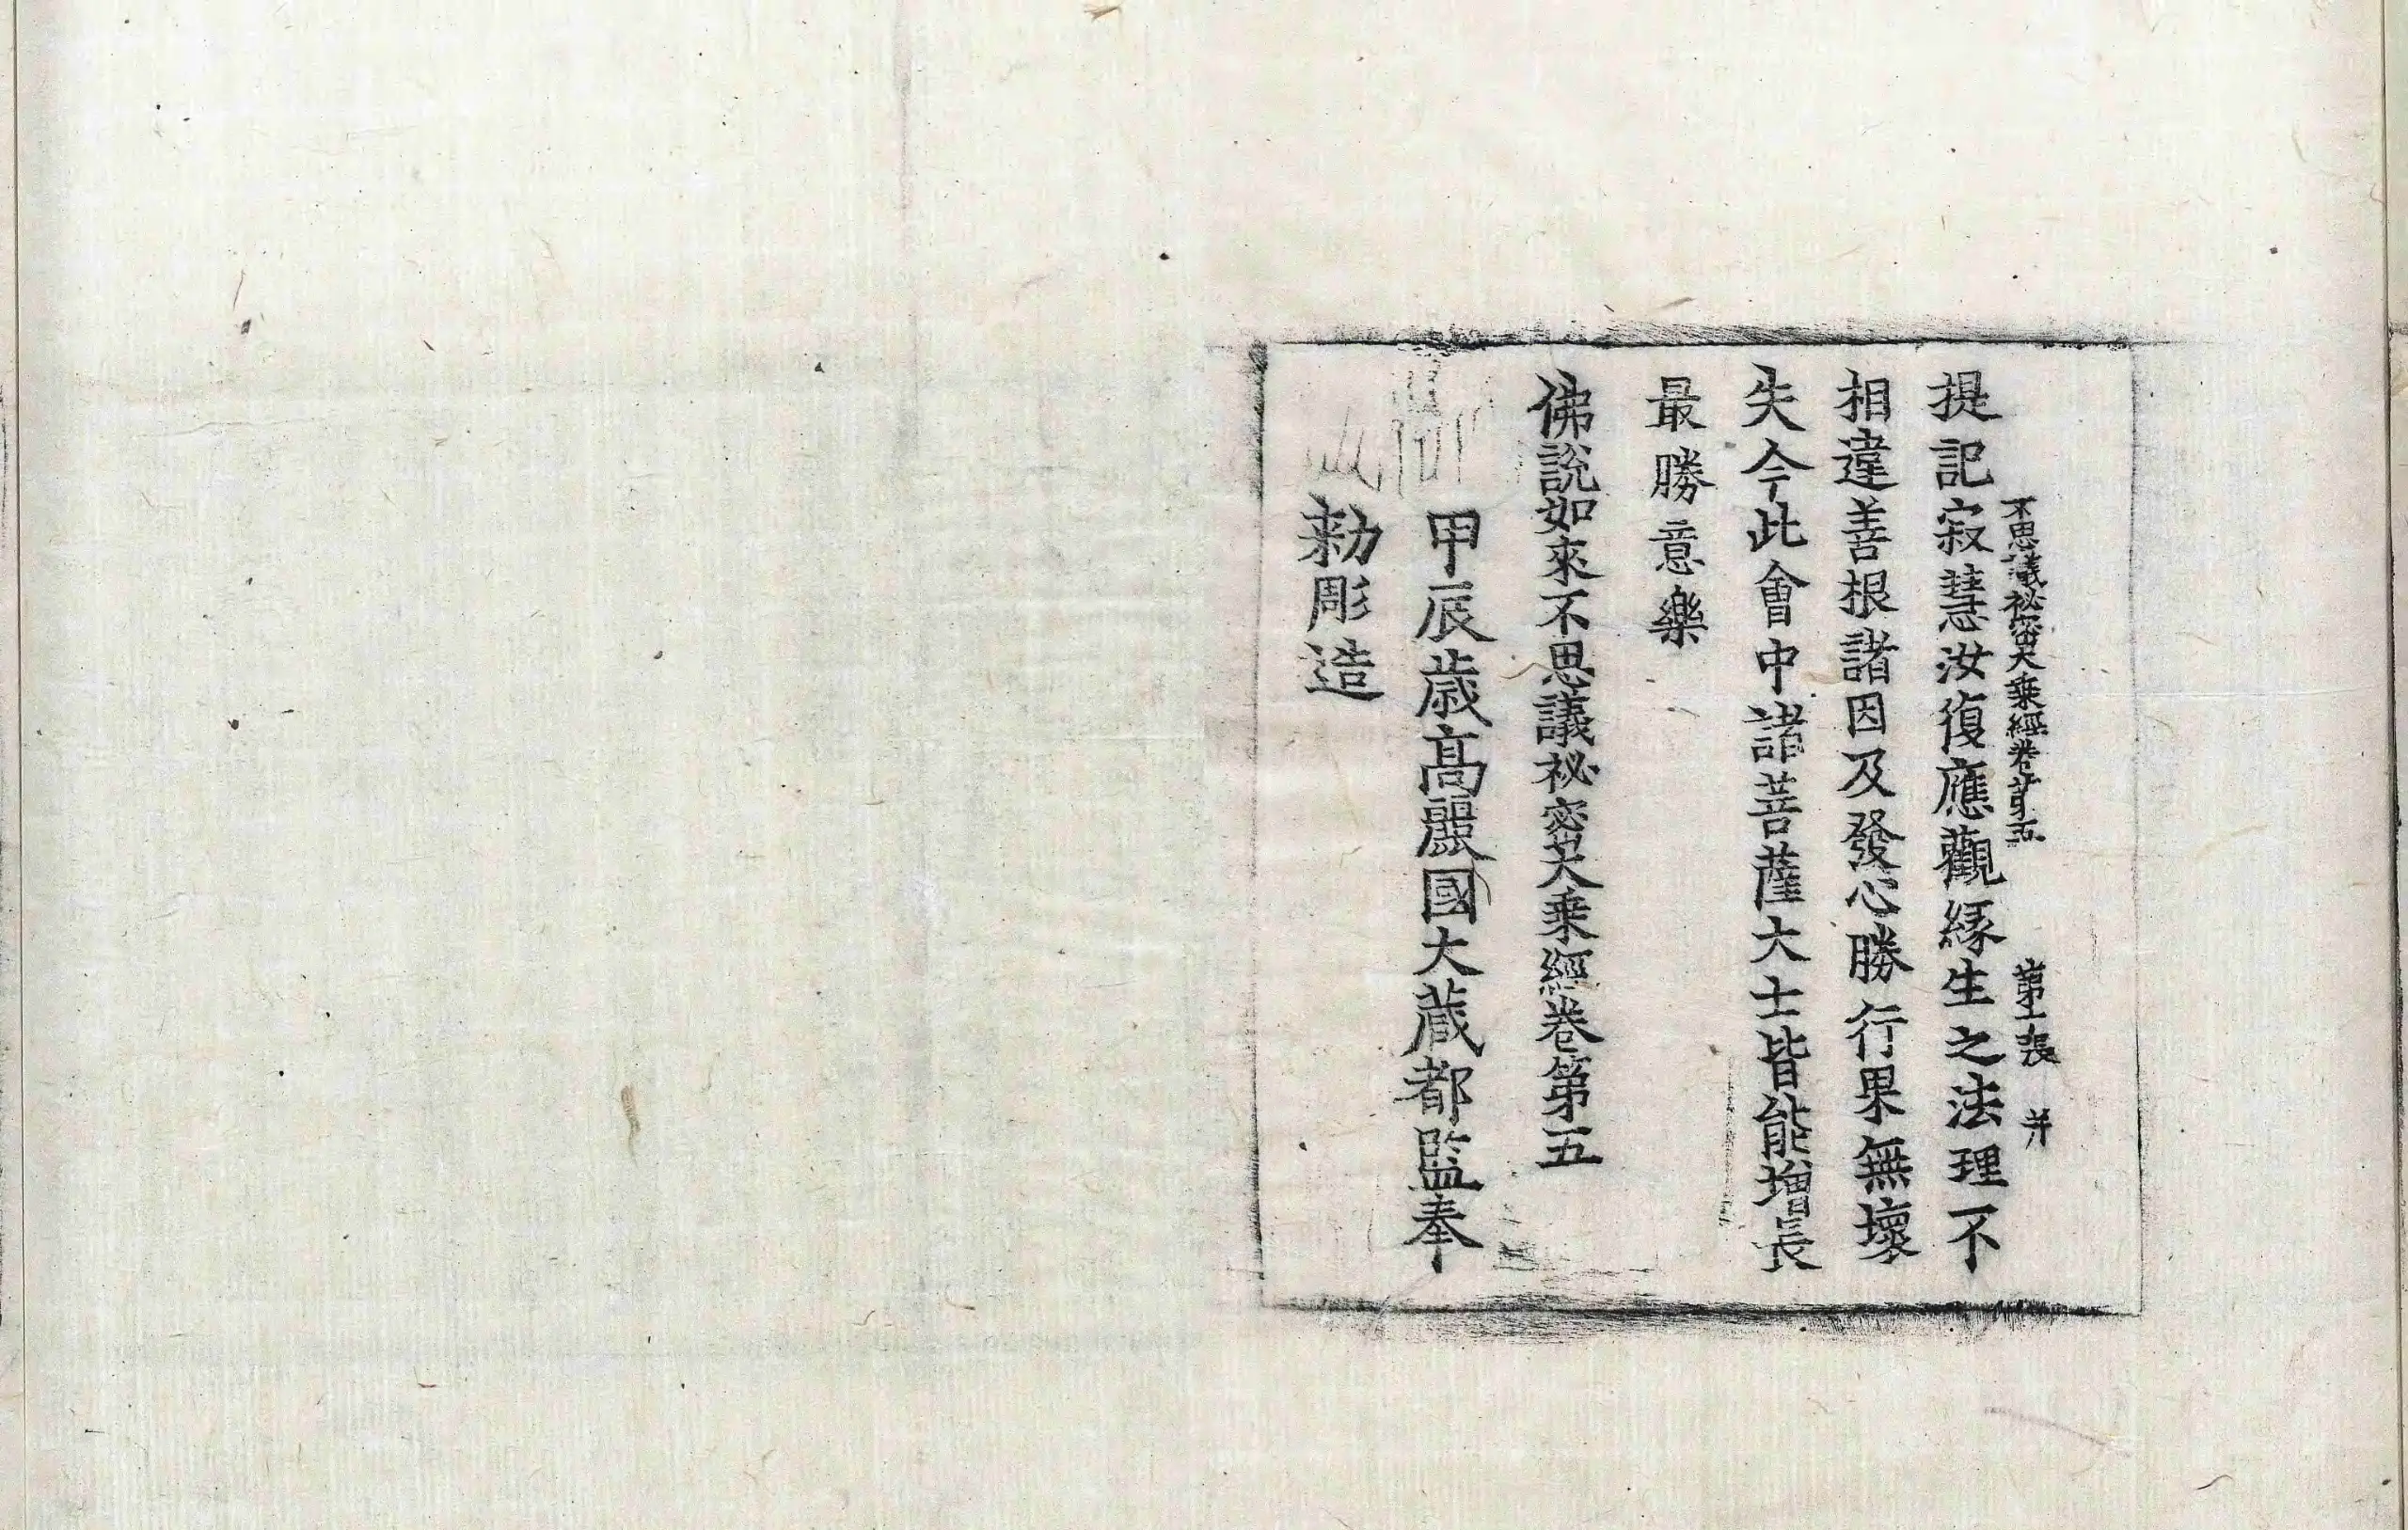 不思議祕密大乘經卷苐五 第十張 并
提記寂慧汝復應觀緣生之法理不
相違善根諸因及發心勝行果無壞
失今此會中諸菩薩大士皆能增長
最勝意樂
佛說如來不思議祕密大乘經卷第五
甲辰歲高麗國大藏都監奉
勑彫造